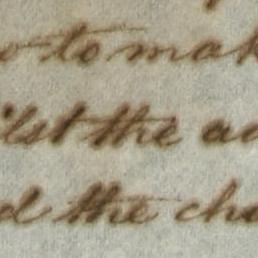 to mak
ilst the a
d the cha